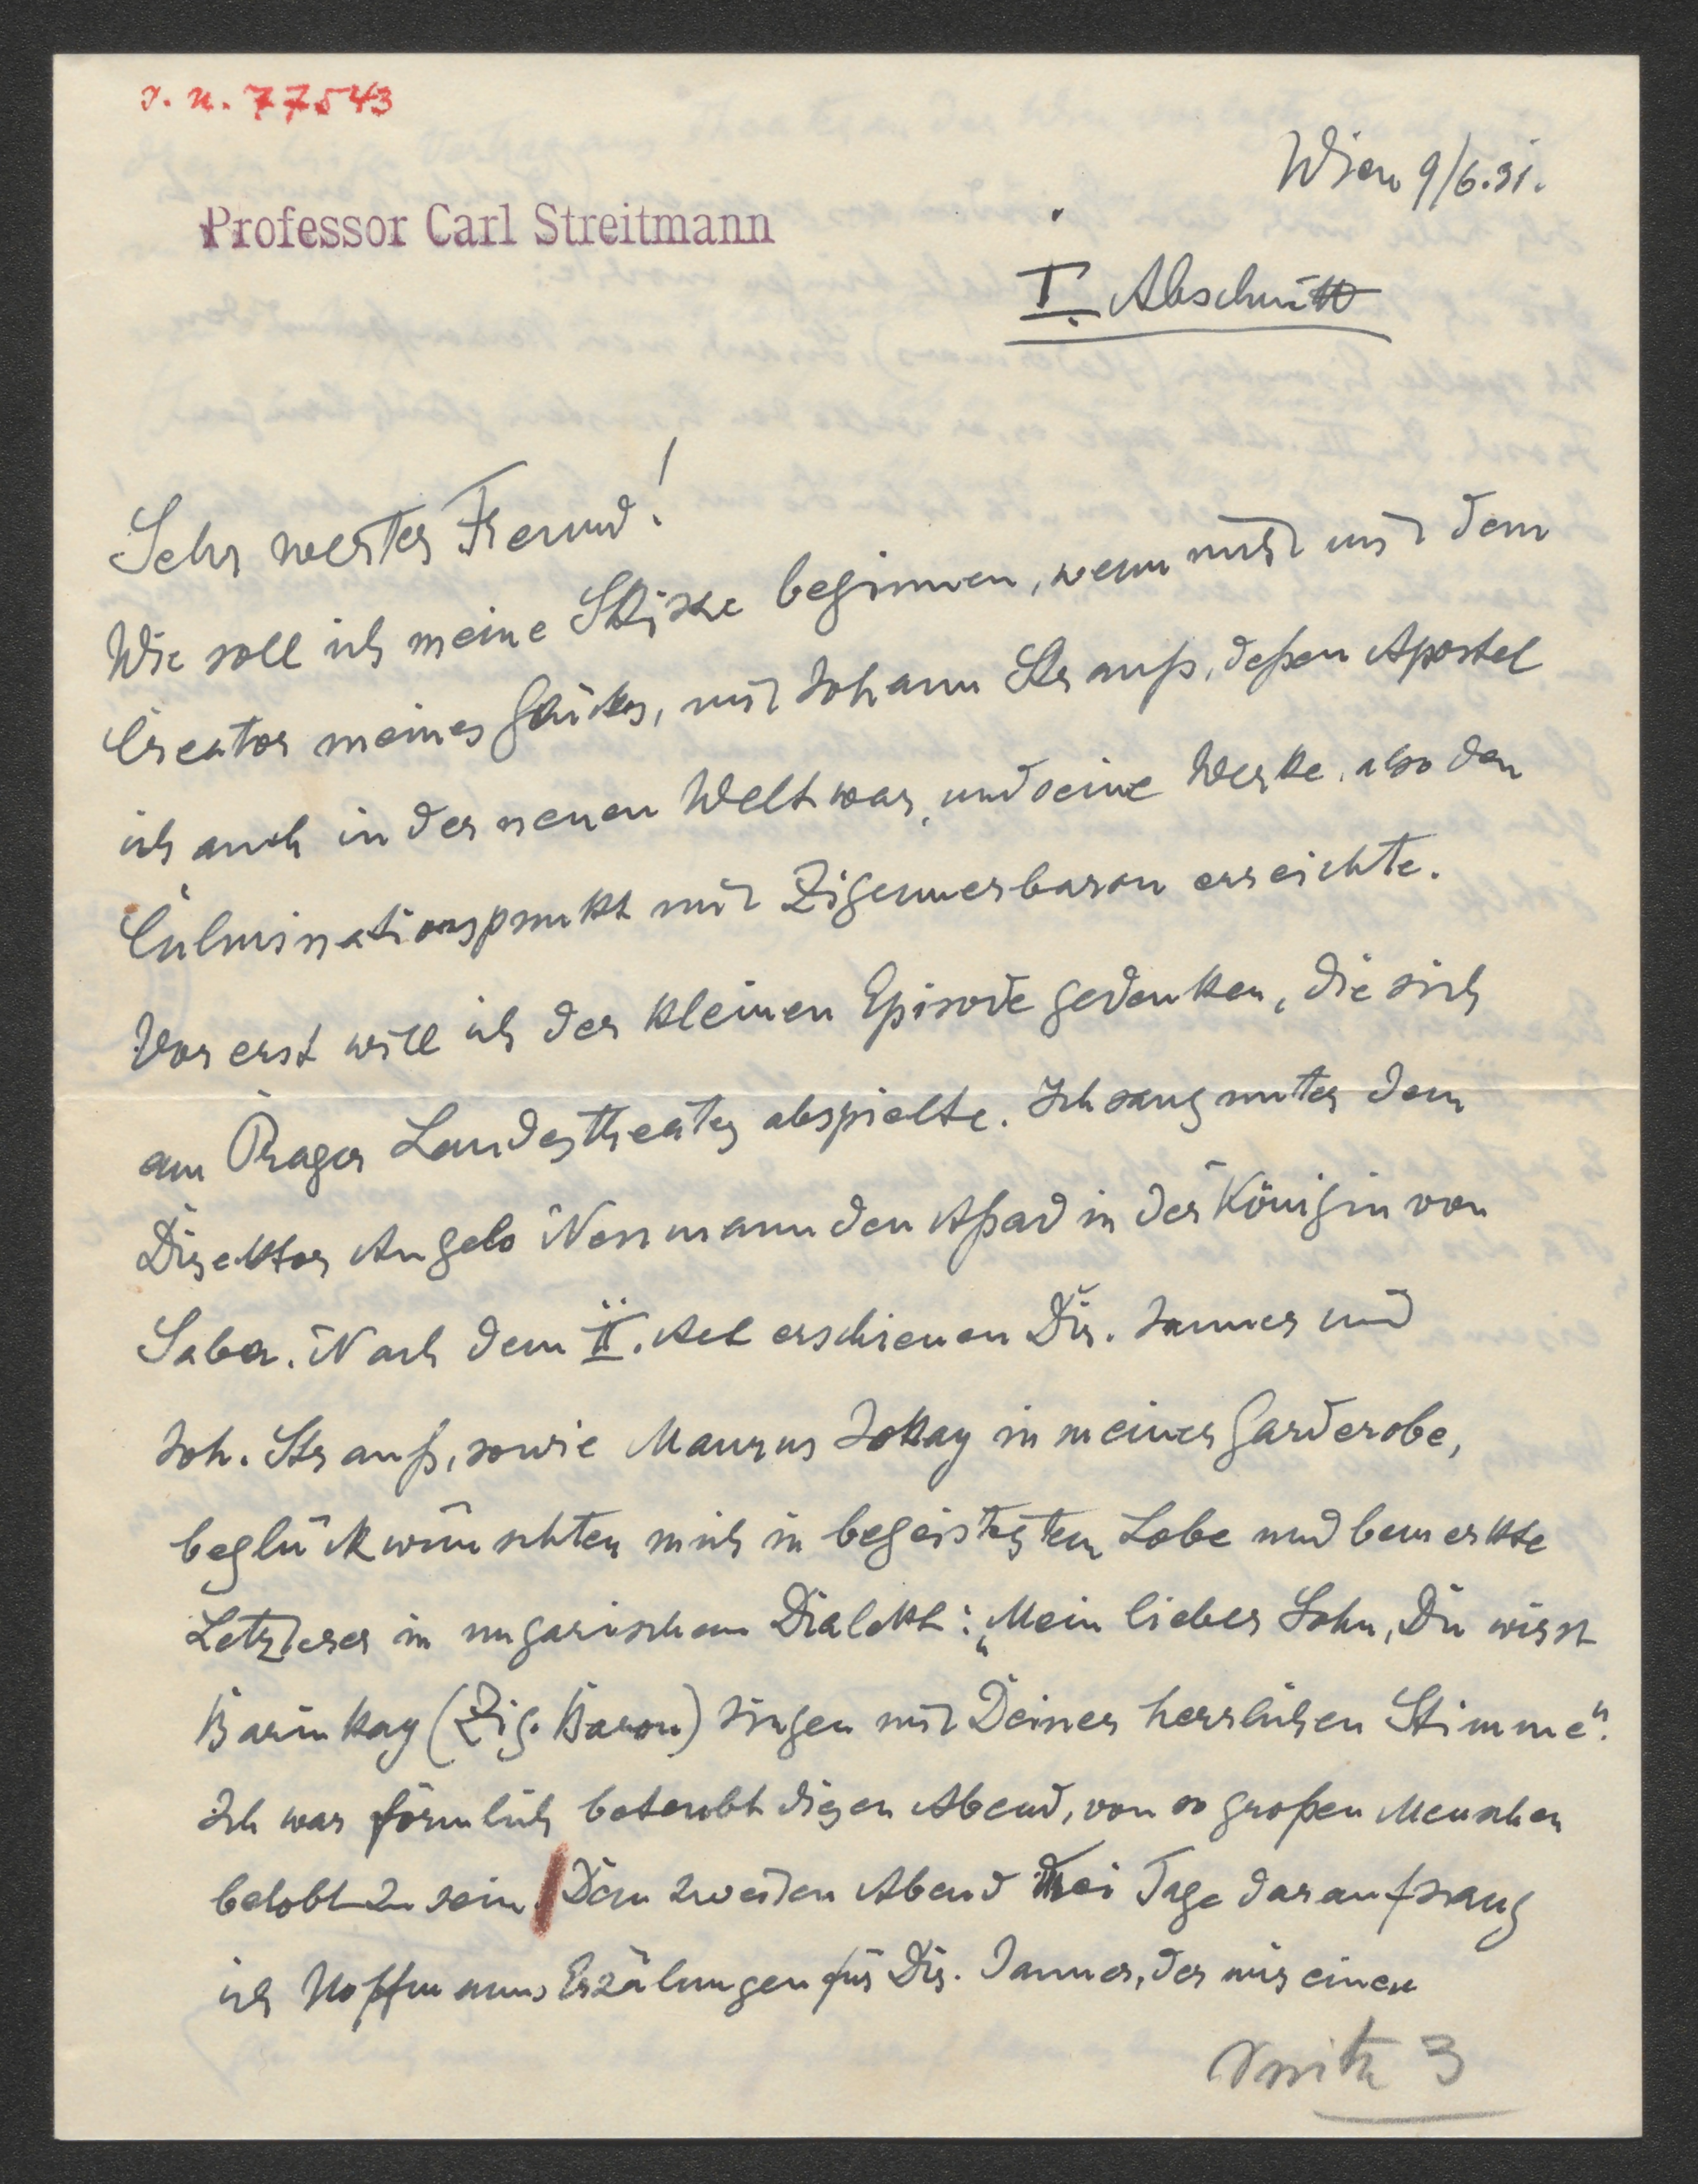 I. N. 77543
Wien 9/6.31.
Professor Carl Streitmann
I. Abschnitt
Sehr werter Freund!
Wie soll ich meine Skizze beginnen, wenn nicht mit dem
Creator meines Glückes, mit Johann Strauß, deßen Apostel
ich auch in der neuen Welt war, und seine Werke, also den
Culminationspunkt mit Zigeunerbaron erreichte.
Vor erst will ich der kleinen Episode gedenken, die sich
am Prager Landestheater abspielte. Ich sang unter dem
Direktor Angelo Neumann den Aßad in der Königin von
Saba. Nach dem II. Akt erschienen Dir. Jauner und
Joh. Strauß, sowie Maurus Jokay in meiner Garderobe,
beglückwünschten mich in begeistertem Lobe und bemerkte
Letzterer in ungarischem Dialekt: „Mein lieber Sohn, Du wirst
Barinkay (Zig. Baron) singen mit Deiner herrlichen Stimme".
Ich war förmlich beteubt diesen Abend, von so großen Menschen
belobt zu sein. Den zweiten Abend drei Tage darauf sang
ich Hoffmanns Erzälungen für Dir. Jauner, der mir einen
3